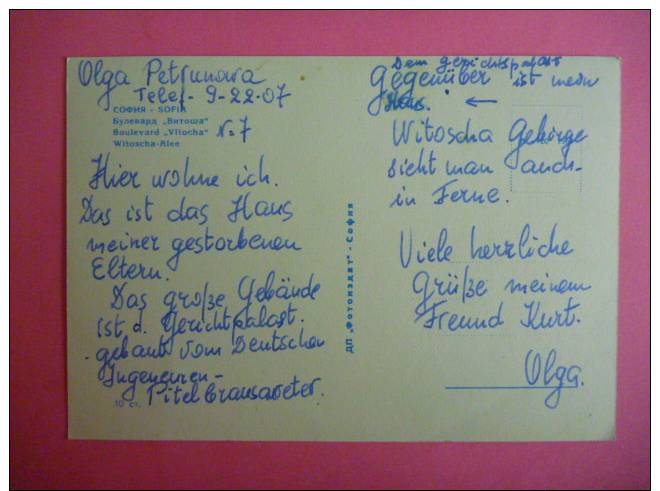 Olga Petrunova
Telef- 9-22-07
СОФИЯ - SOFIA
Булевард „Витоша"
Boulevard „Vitocha" N=7
Witoscha-Alee
Hier wohne ich.
Das ist das Haus
meiner gestorbenen
Eltern.
Das große Gebäude
ist d. Gerichtpalast.
gebaut vom Deutschen
Ingeneuren-
10 ст.
ДП „Фотоиздат" - София
Dem Gerichtspalast
Gegenüber ist mein
Haus. ←
Witoscha Gebirge
sieht man auch-
in Ferne.
Viele herzliche
Grüße meinem
Freund Kurt.
Olga.